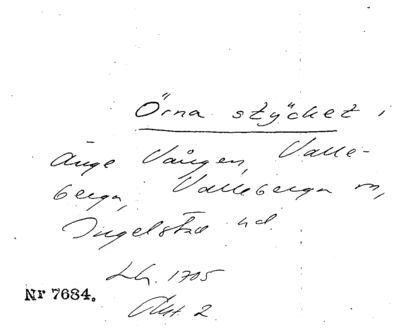 Örna stycket i
Änge Vången, Valle-
berga, Valleberga sn,
Ingelstad hd.
Lh. 1705
Akt 2
Nr 7684.